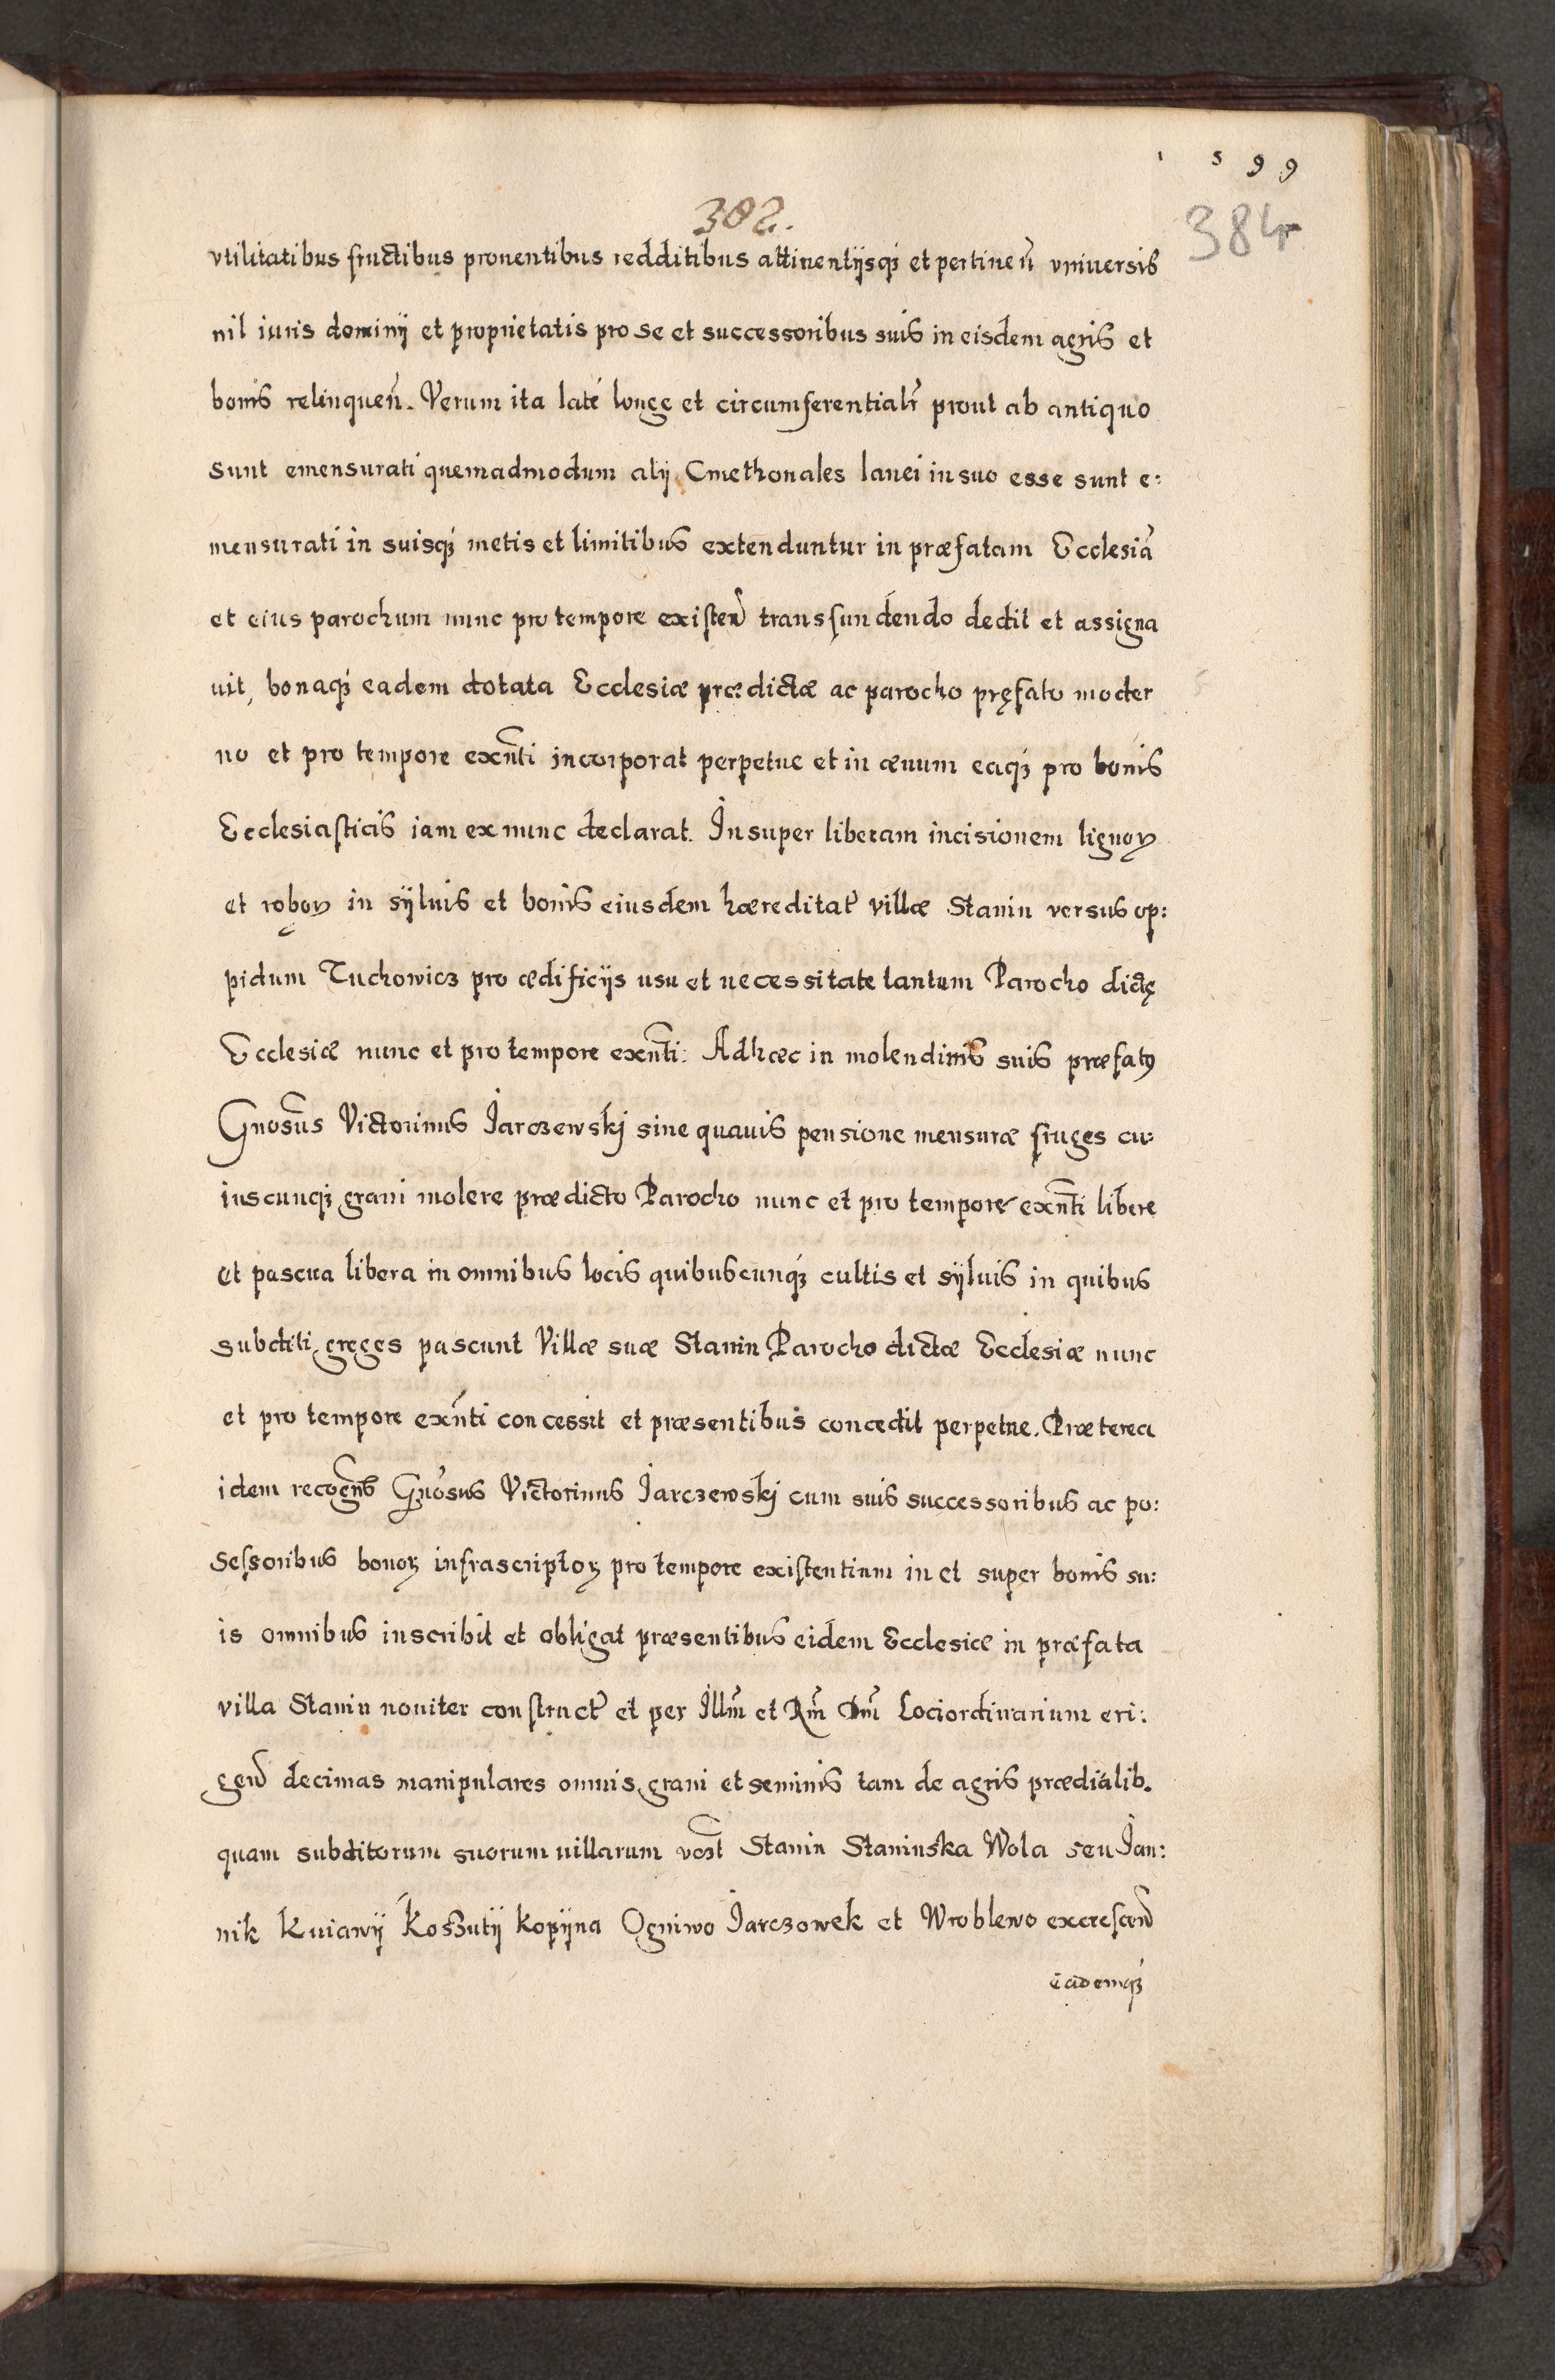 1599
382.
384r
vtilitatibus fructibus prouentibus redditibus attinentijsq₃ et pertineñ vniuersis
nil iuris dominij et proprietatis pro se et successoribus suis in eisdem agris et
bonis relinqueñ. Verum ita latè longe et circumferentialr̃ prout ab antiquo
sunt emensurati quemadmodum alij Cmethonales lanei in suo esse sunt e:
mensurati in suisq₃ metis et limitibus extenduntur in præfatam Ecclesiã
et eius parochum nunc pro tempore existeñ transfundendo dedit et assigna
uit, bonaq₃ eadem dotata Ecclesiæ prædictæ ac parocho pręfato moder
no et pro tempore exñti incorporat perpetue et in æuum eaq₃ pro bonis
Ecclesiasticis iam ex nunc declarat. Insuper liberam incisionem lignoꝝ
et roboꝝ in sÿluis et bonis eiusdem hæreditat̃ villæ Stanin versus op:
pidum Tuchowicz pro ædificijs usu et necessitate tantum Parocho dictę
Ecclesiæ nunc et pro tempore exñti: Ad hæc in molendinis suis præfatꝯ
Gnosũs Victorinus Jarczewskj sine quauis pensione mensuræ fruges cu:
iuscunq₃ grani molere prædicto Parocho nunc et pro tempore exñti libere
et pascua libera in omnibus locis quibuscunq₃ cultis et sÿluis in quibus
subditi greges pascunt Villæ suæ Stanin Parocho dictæ Ecclesiæ nunc
et pro tempore exñti concessit et præsentibus concedit perpetue. Præterea
idem recogñs Gnõsus Victorinus Jarczewskj cum suis successoribus ac po:
sessoribus bonoꝝ infrascriptoꝝ pro tempore existentium in et super bonis su:
is omnibus inscribit et obligat præsentibus eidem Ecclesiæ in præfata
villa Stanin nouiter construct̃ et per Illm̃ et Rm̃ Dm̃ Lociordinarium eri:
geñ decimas manipulares omnis grani et seminis tam de agris prædialib.
quam subditorum suorum uillarum vcst̃ Stanin Staninska Wola seu Jan:
nik Kuiawÿ Koszutÿ Kopÿna Ogniwo Jarczowek et Wroblewo excresceñ
eademq₃